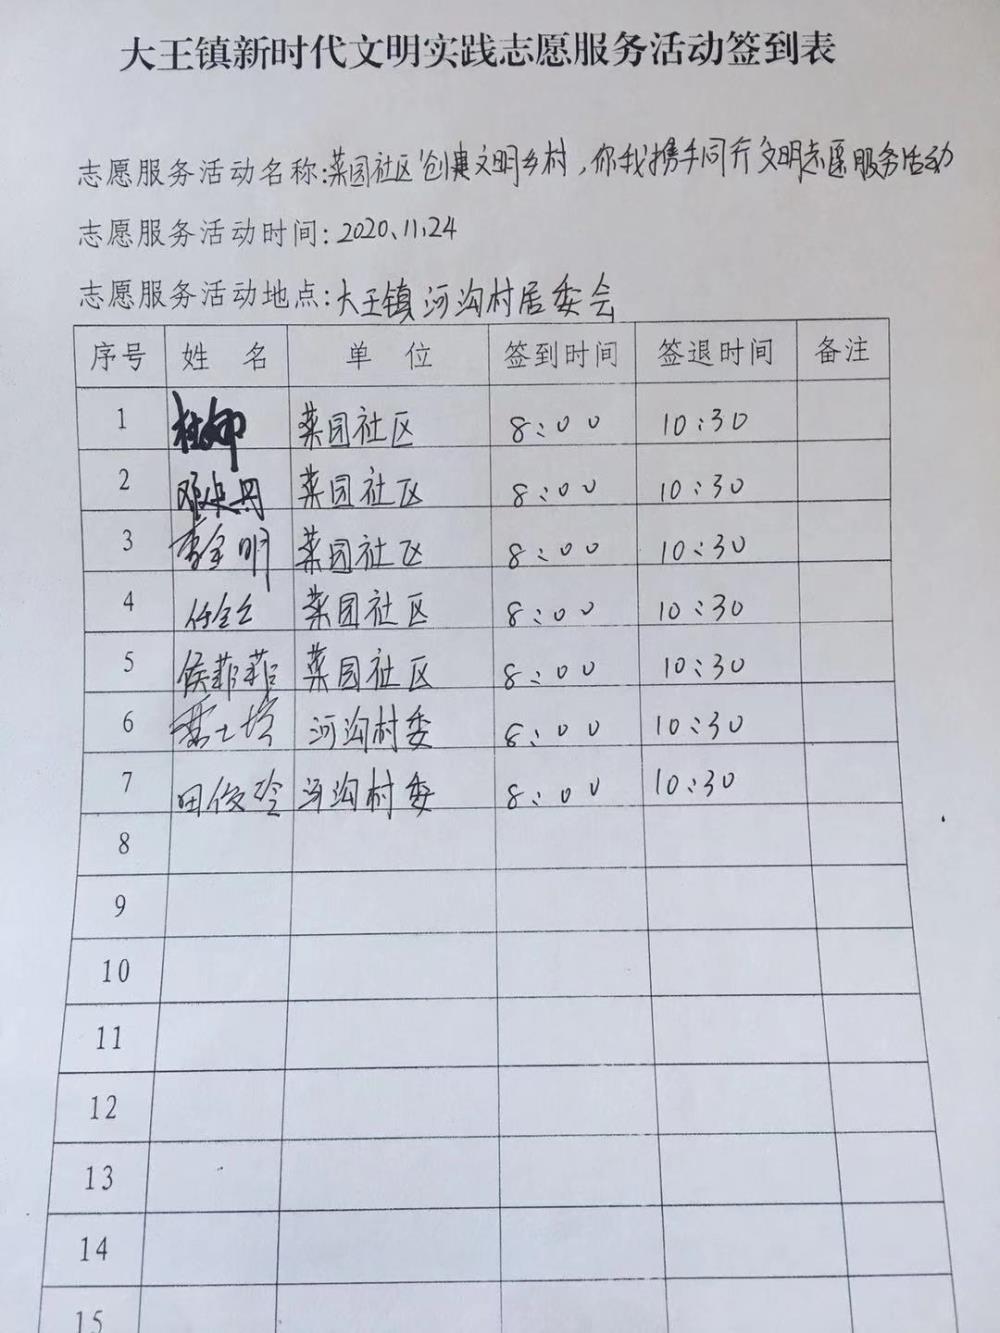 大王镇新时代文明实践志愿服务活动签到表
志愿服务活动名称:菜园社区“创建文明乡村,你我携手同行”文明志愿服务活动
志愿服务活动时间:2020、11、24
志愿服务活动地点:大王镇河沟村居委会
序号 姓 名 单 位 签到时间 签退时间 备注
1 杜娜 菜园社区 8:00 10:30
2 菜园社区 8:00 10:30
3 李全明 菜园社区 8:00 10:30
4 菜园社区 8:00 10:30
5 侯菲菲 菜园社区 8:00 10:30
6 河沟村委 8:00 10:30
7 田俊玲 河沟村委 8:00 10:30
8
9
10
11
12
13
14
15